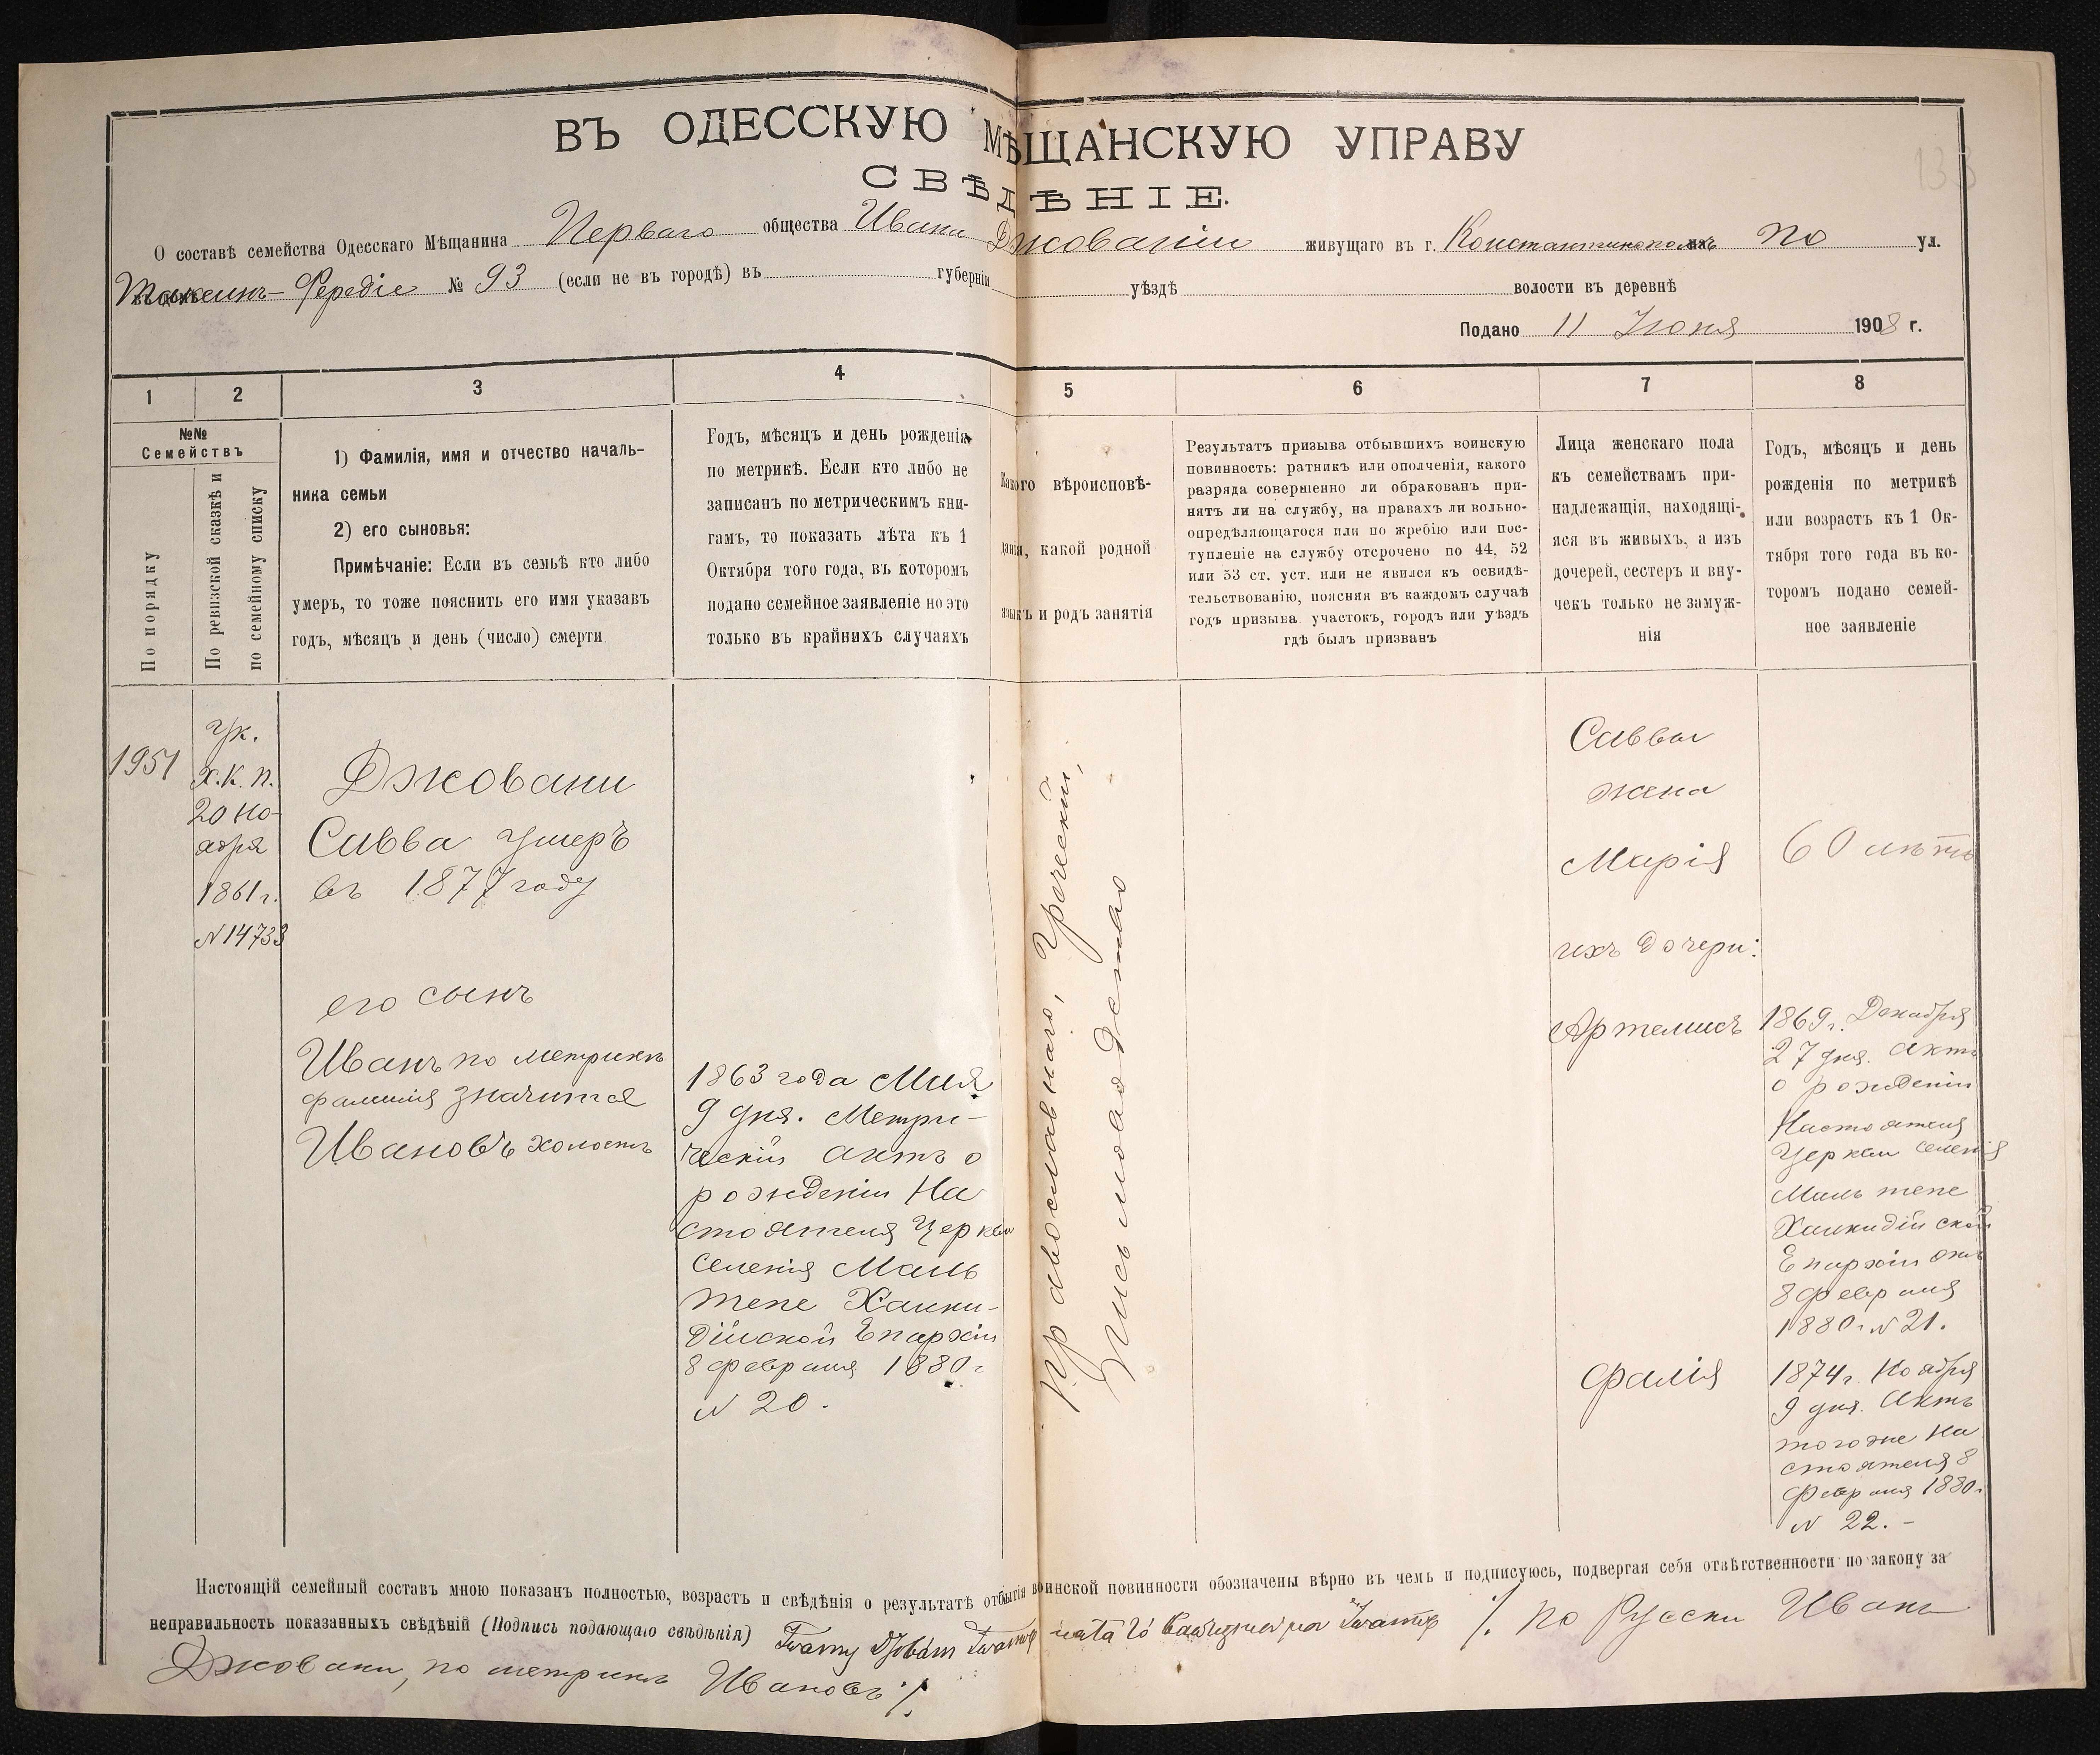 ВЪ ОДЕССКУЮ МѢЩАНСКУЮ УПРАВУ
СВѢДѢНІЕ.
О составѣ семейства Одесскаго Мѣщанина Перваго общества Ивана Джованіи живущаго въ г. Константинополѣ по ул.
№ 93 (если не въ городѣ) въ губерніи уѣздѣ волости въ деревнѣ
Подано 11 Іюня 1908 г.
1 2 3 4 5 6 7 8
№№
Семействъ
По порядку
По ревизской сказкѣ и
по семейному списку
1) Фамилія, имя и отчество началь-
ника семьи
2) его сыновья:
Примѣчаніе: Если въ семьѣ кто либо
умеръ, то тоже пояснить его имя указавъ
годъ, мѣсяцъ и день (число) смерти
Годъ, мѣсяцъ и день рожденія
по метрикѣ. Если кто либо не
записанъ по метрическимъ кни-
гамъ, то показать лѣта къ 1
Октября того года, въ которомъ
подано семейное заявленіе но это
только въ крайнихъ случаяхъ
Какого вѣроисповѣ-
данія, какой родной
языкъ и родъ занятія
Результатъ призыва отбывшихъ воинскую
повинность: ратникъ или ополченія, какого
разряда совершенно ли обракованъ при-
нятъ ли на службу, на правахъ ли вольно-
опредѣляющагося или по жребію или пос-
тупленіе на службу отсрочено по 44, 52
или 53 ст. уст. или не явился къ освидѣ-
тельствованію, поясняя въ каждомъ случаѣ
годъ призыва участокъ, городъ или уѣздъ
гдѣ былъ призванъ
Лица женскаго пола
къ семействамъ при-
надлежащія, находящі-
яся въ живыхъ, а изъ
дочерей, сестеръ и вну-
чекъ только не замуж-
нія
Годъ, мѣсяцъ и день
рожденія по метрикѣ
или возрастъ къ 1 Ок-
тября того года въ ко-
торомъ подано семей-
ное заявленіе
1951
Ук.
Х.К.П.
20 Но-
ября
1861 г.
N 14733
Джовани
Савва умеръ
въ 1877 году
его сынъ
Иванъ по метрикѣ
фамилія значится
Ивановъ холостъ
1863 года Мая
9 дня. Метри-
ческій актъ о
рожденіи На
стоятеля Церкви
селенія Маль
тепе Халки-
дійской Епархіи
8 февраля 1880 г
N 20.
Православнаго, Греческій,
Письмоводство
Саввы
жена
Марія
60 лѣтъ
ихъ дочери:
Артемисъ
1869 г. Декабря
27 дня. Актъ
о рожденіи
Настоятеля
Церкви селенія
Маль тепе
Халкидійской
Епархіи отъ
8 февраля
1880 г N 21.
Фалія
1874 г. Ноября
9 дня. Актъ
тогоже На
стоятеля 8
Февраля 1880 г
N 22.-
Настоящій семейный составъ мною показанъ полностью, возрастъ и свѣдѣнія о результатѣ отбытія воинской повинности обозначены вѣрно въ чемъ и подписуюсь, подвергая себя отвѣтственности по закону за
неправильность показанныхъ свѣдѣній (Подпись подающаго свѣдѣнія) ·/. по Русски Иванъ
Джовани, по метрикѣ Ивановъ ·/.